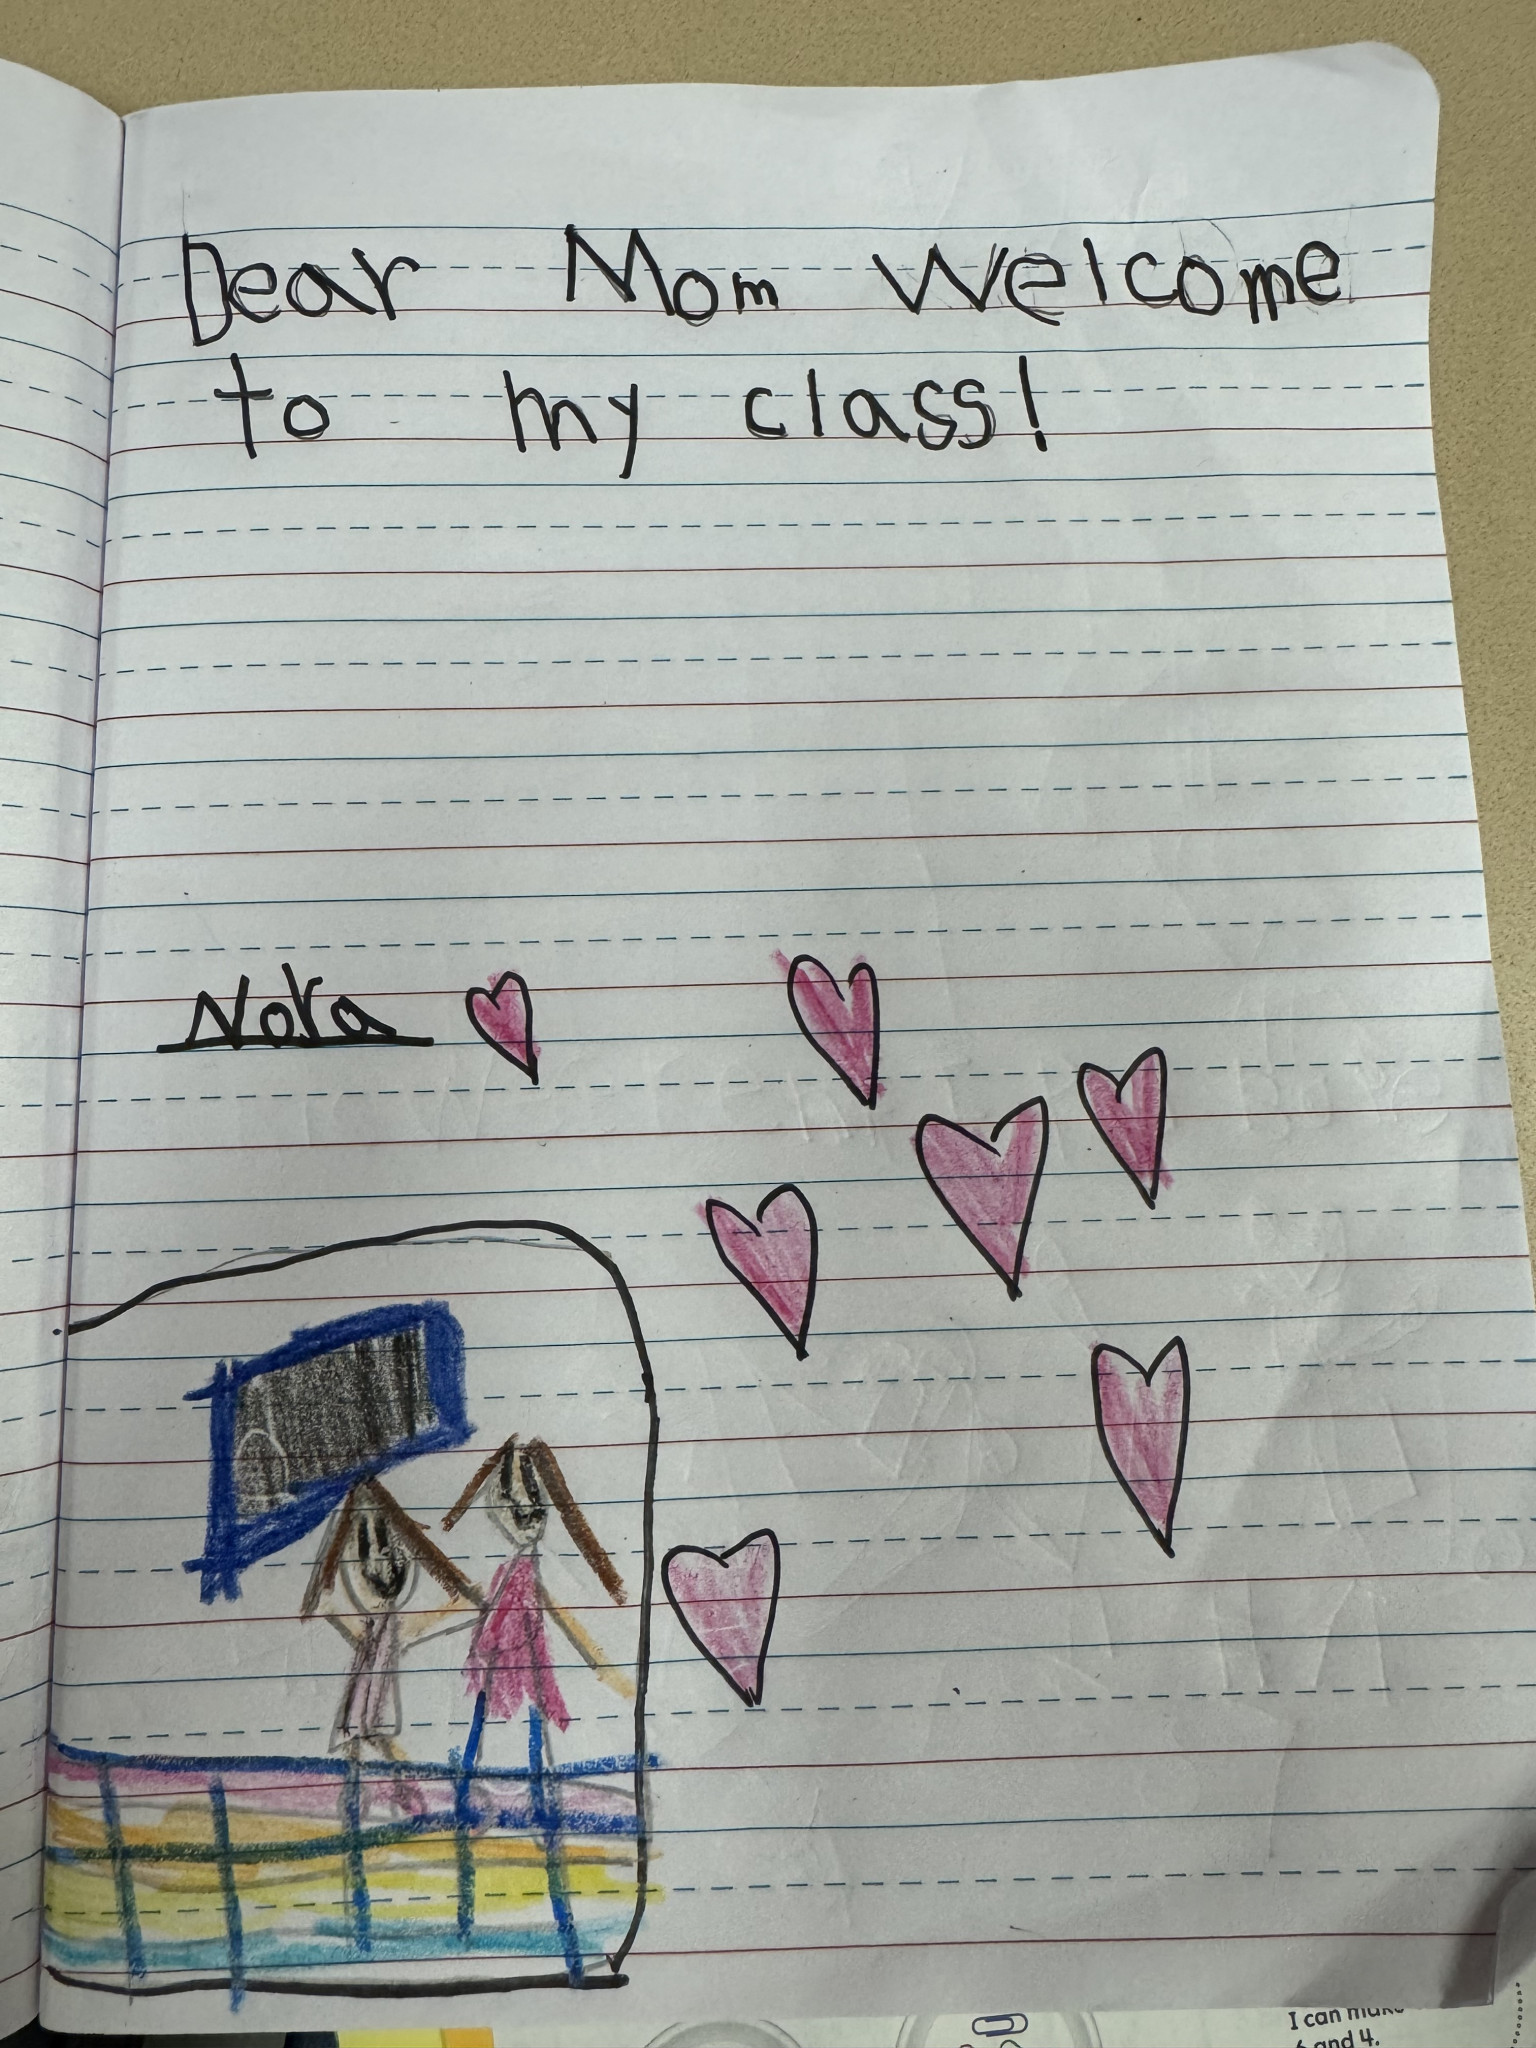 Dear Mom Welcome
to my class!
Nora
I can make
6 and 4.